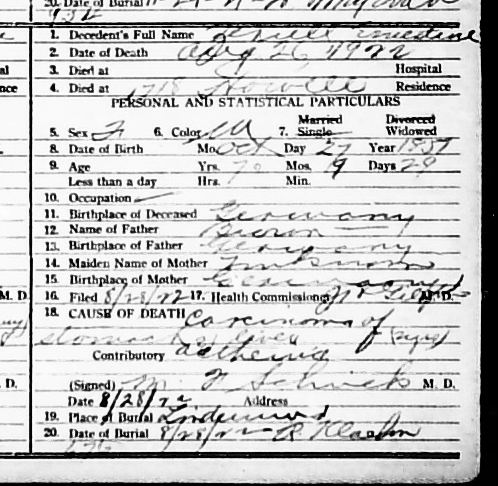 20. Date of Burial
1. Decedent's Full Name
2. Date of Death Aug 26 1922
3. Died at Hospital
4. Died at 1718 Howell Residence
PERSONAL AND STATISTICAL PARTICULARS
Married Divorced
5. Sex F 6. Color W 7. Single Widowed
8. Date of Birth Mo. Oct Day 27 Year
9. Age Yrs. Mos. 9 Days 29
Less than a day Hrs. Min.
10. Occupation —
11. Birthplace of Deceased Germany
12. Name of Father Brown
13. Birthplace of Father Germany
14. Maiden Name of Mother Unknown
15. Birthplace of Mother Germany
M. D. 16. Filed 8/28/22 17. Health Commissioner M. D.
18. CAUSE OF DEATH Carcinoma of
stomach & liver
Contributory asthenia
D. (Signed) M. D.
Date 8/28/22 Address
19. Place of Burial Lindenwood
20. Date of Burial 8/28/22